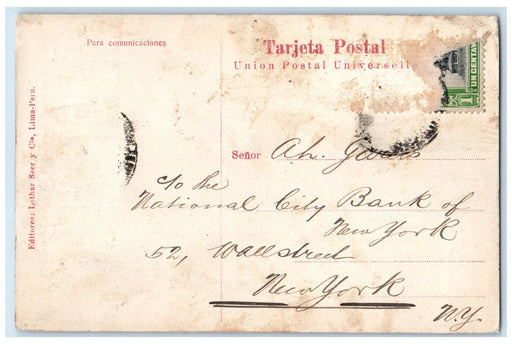 Para comunicaciones
Tarjeta Postal
Union Postal Universell
UN CENTAV
1
Editores: Lothar Seer y Cia, Lima-Peru.
Señor Ah.
c/o the
National City Bank of
New York
52, Wall street
New York
N.Y.